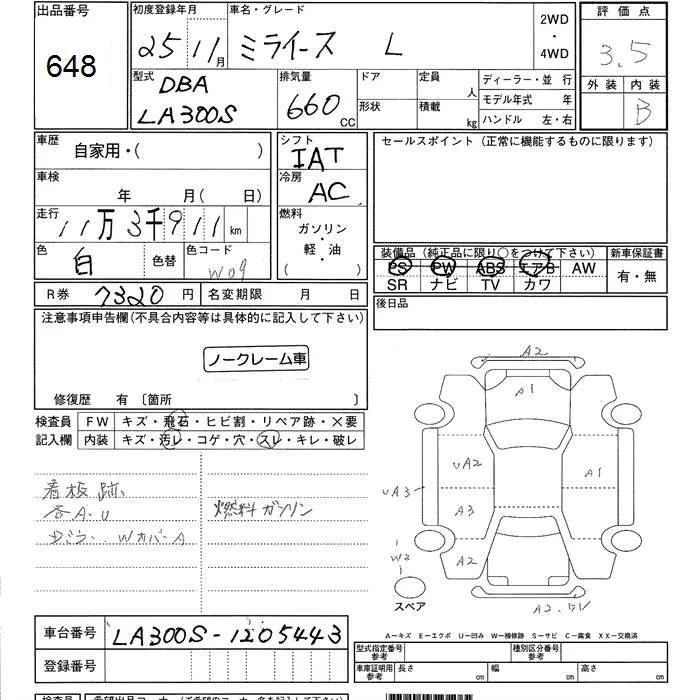 出品番号 初度登録年月 車名・グレード 2WD・4WD 評価点
648 25 11月 ミライース L 3.5
型式 DBA LA300S 排気量 660 CC ドア 形状 定員 人 積載 kg ディーラー・並 行 モデル年式 年 ハンドル 左・右 外装 内装 B
車歴 自家用・( ) シフト IAT セールスポイント (正常に機能するものに限ります)
車検 年 月(日) 冷房 AC
走行 11万3千911km 燃料 ガソリン・軽・油 ( )
色 白 色替 色コード W09 装備品 (純正品に限り○をつけて下さい) 新車保証書
PS PW ABS エアB AW 有・無
SR ナビ TV カワ
R券 7320円 名変期限 月 日 後日品
注意事項申告欄(不具合内容等は具体的に記入して下さい)
ノークレーム車
修復歴 有 〔箇所 〕
検査員 FW キズ・飛石・ヒビ割・リペア跡・×要
記入欄 内装 キズ・汚レ・コゲ・穴・スレ・キレ・破レ
看板跡
各A.U 燃料ガソリン
Wカバ-A
A2
A1
UA2 A1
UA3 A3
W2 A2
スペア
A2.
A-キズ E-エクボ U-凹み W-補修跡 S-サビ C-腐食 XX-交換済
車台番号 LA300S-1205443 型式指定番号 参考 種別区分番号 参考
登録番号 車庫証明用 参考 長さ cm 幅 cm 高さ cm